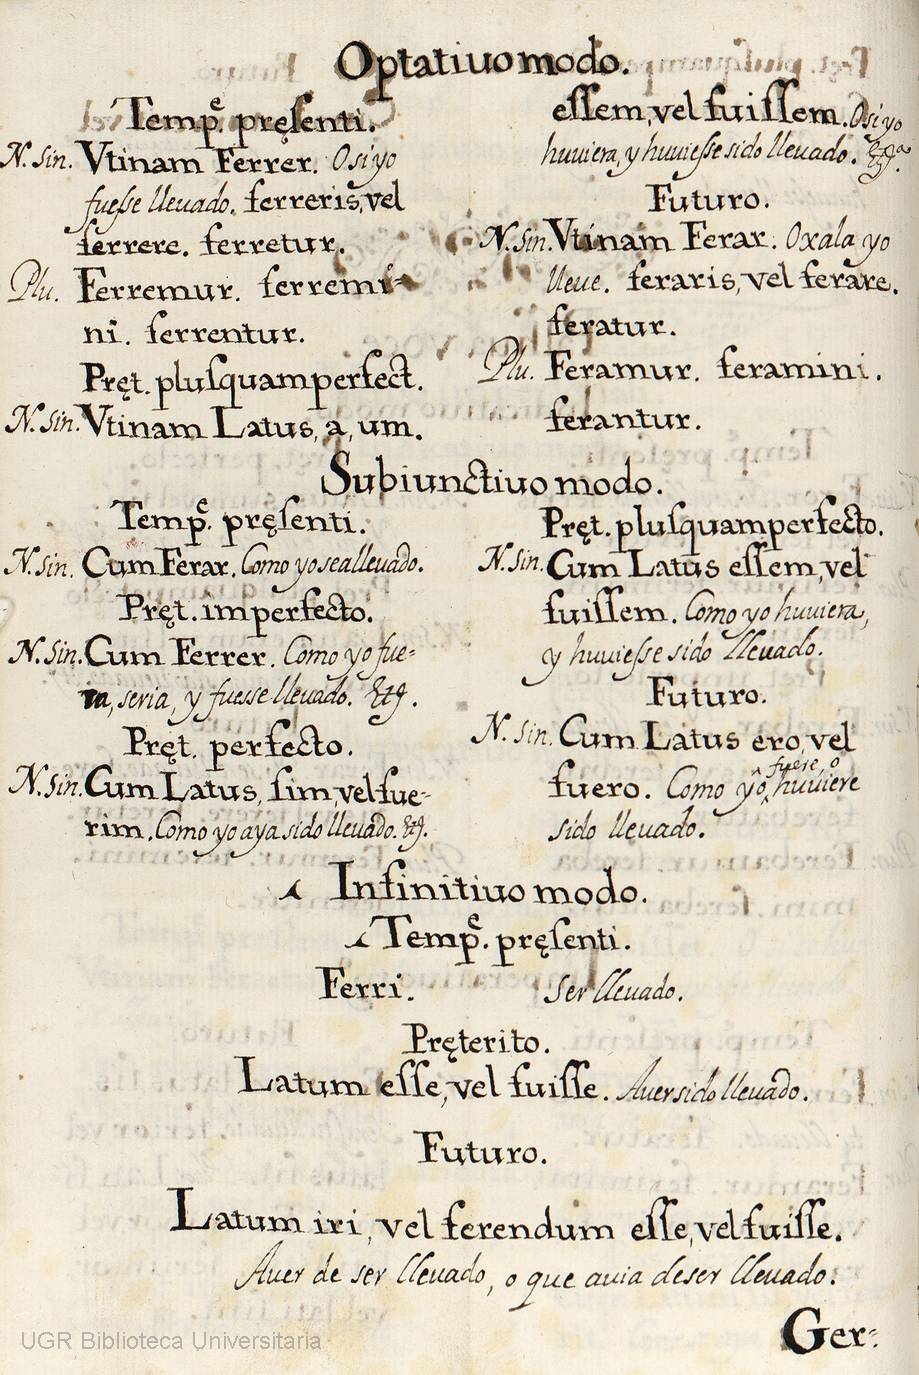 Optatiuo modo.
Temp̃e. pręſenti.
N. Sin. Vtinam Ferrer. O si yo
fuesse lleuado. ferreris, vel
ferrere. ferretur.
Plu. Ferremur. ferremi-
ni. ferrentur.
Pręt. pluſquamperfect.
N. Sin. Vtinam Latus, a, um.
eſſem, vel fuiſſem. O si yo
huuiera, y huuiesse sido lleuado. &c.ª
Futuro.
N. Sin. Vtinam Ferar. Oxala yo
lleue. feraris, vel ferare.
feratur.
Plu. Feramur. feramini.
ferantur.
Subiunctiuo modo.
Temp̃e. pręſenti.
N. Sin. Cum Ferar. Como yo sea lleuado.
Pręt. imperfecto.
N. Sin. Cum Ferrer. Como yo fue-
ra, seria, y fuesse lleuado. &c.
Pręt. perfecto.
N. Sin. Cum Latus, ſim, vel fue-
rim. Como yo aya sido lleuado. &c.
Pręt. pluſquamperfecto.
N. Sin. Cum Latus eſſem, vel
fuiſſem. Como yo huuiera,
y huuiesse sido lleuado.
Futuro.
N. Sin. Cum Latus ero, vel
fuere, o
fuero. Como yo ^ huuiere
sido lleuado.
Infinitiuo modo.
Temp̃e. pręſenti.
Ferri. Ser lleuado.
Pręterito.
Latum eſſe, vel fuiſſe. Auer sido lleuado.
Futuro.
Latum iri, vel ferendum eſſe, vel fuiſſe.
Auer de ser lleuado, o que auia de ser lleuado.
Ger-
UGR Biblioteca Universitaria